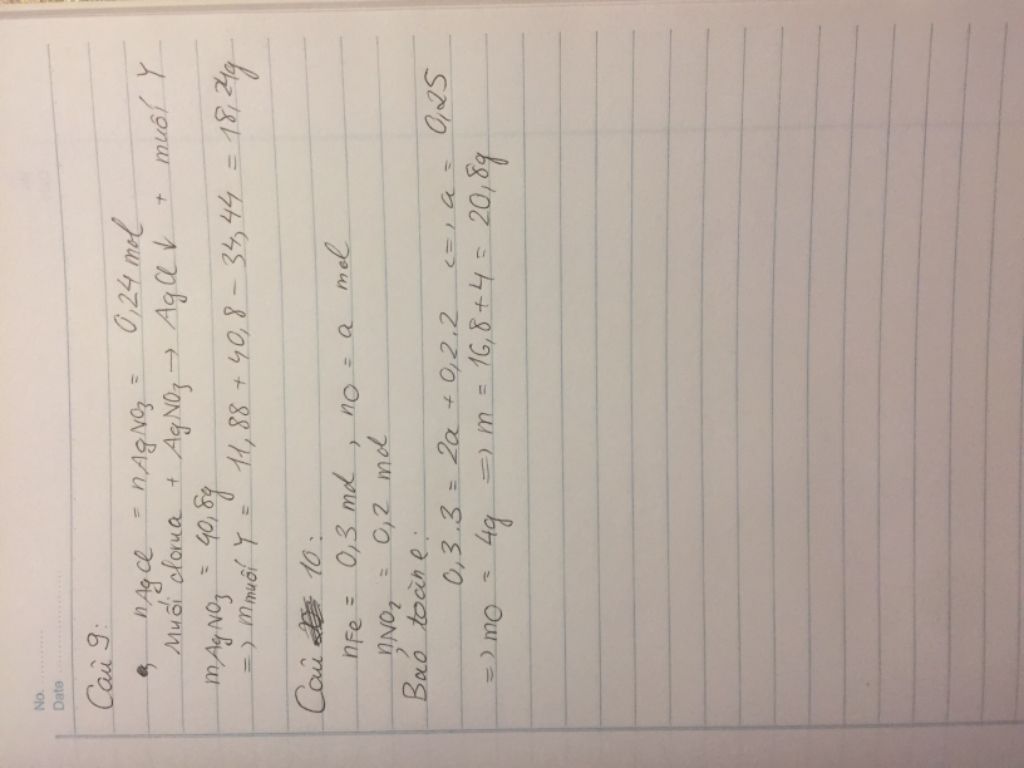 No. ............
Date ........................
Câu 9:
nAgCl = nAgNO₃ = 0,24 mol
Muối clorua + AgNO₃ → AgCl ↓ + muối Y
mAgNO₃ = 40,8g
=> mmuối Y = 11,88 + 40,8 - 34,44 = 18,24g
Câu 10:
nFe = 0,3 mol, nO = a mol
nNO₂ = 0,2 mol
Bảo toàn e:
0,3.3 = 2a + 0,2.2 <=> a = 0,25
=> mO = 4g => m = 16,8 + 4 = 20,8g